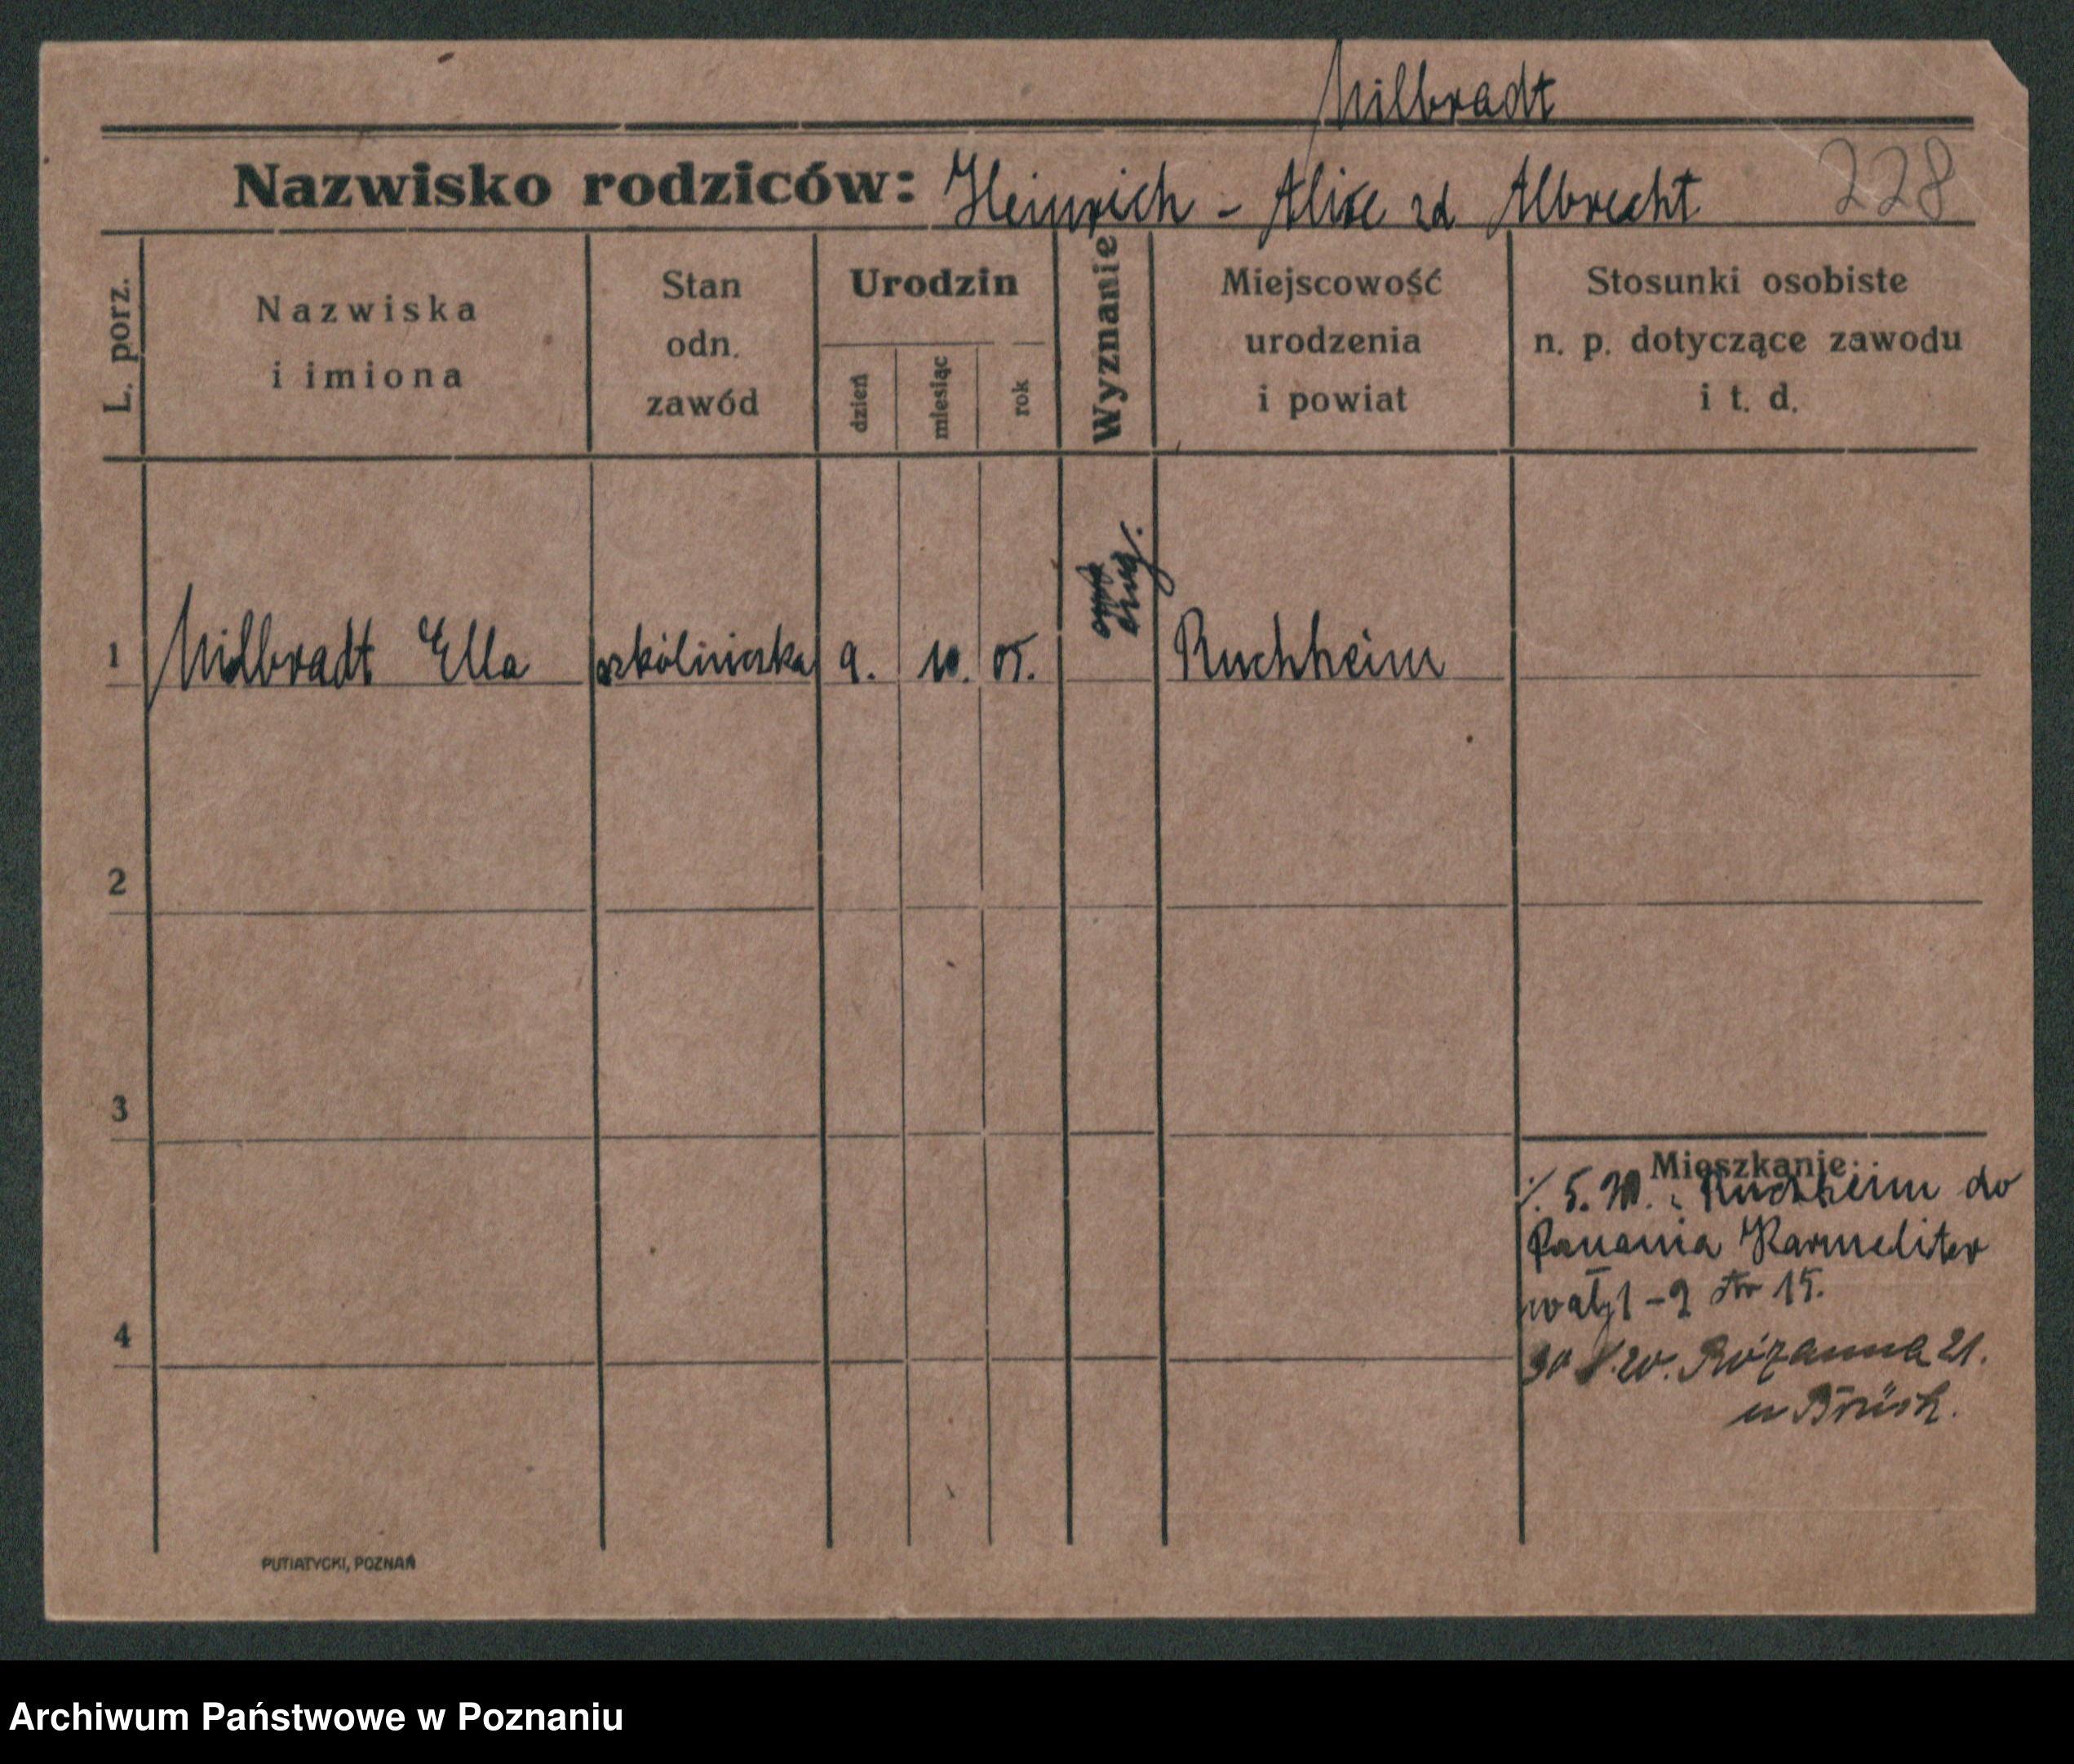 Milbradt
Nazwisko rodziców: Heinrich - Alice zd Albrecht 228
L. porz.
Nazwiska
i imiona
Stan
odn.
zawód
Urodzin
dzień
miesiąc
rok
Wyznanie
Miejscowość
urodzenia
i powiat
Stosunki osobiste
n. p. dotyczące zawodu
i t. d.
1 Milbradt Ella 9. 10. 05. Ruchheim
ewg.
2
3
4
Mieszkanie:
5. 20. Ruchheim do
Karmeliter
1-2 15.
20. Różanna 21.
u
PUTIATYCKI, POZNAŃ
Archiwum Państwowe w Poznaniu